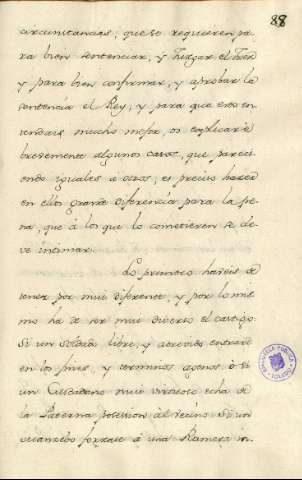 88
circunstancias, que se requieren pa-
ra bien sentenciar, y Juzgar el Juez
y para bien confirmar, y aprobar la
sentencia el Rey, y para que esto en-
tendais mucho mejor, os explicaré
brevemente algunos casos, que pareci-
endo iguales a otros, es preciso hacer
en ellos grande diferencia para la pe-
na, que á los que lo cometieren se de-
ve intimar.
Lo primero haveis de
tener por mui diferente, y por lo mis-
mo ha de ser mui diverso el castigo.
Si un soldado libre, y atrevido entrase
en los fines, y terminos agenos ó si
un Ciudadano mui virtuoso echa de
la Paterna posesion al vecino. Si un
mancebo forzase á una Ramera in-
BIBLIOTECA PUBLICA
TOLEDO